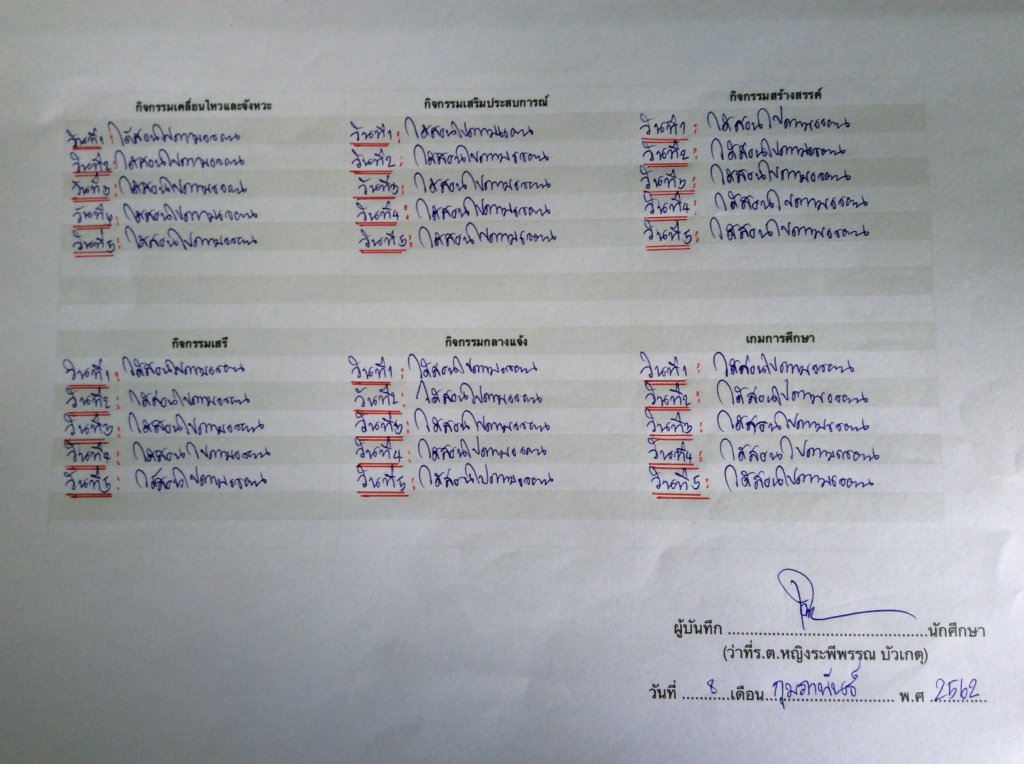 กิจกรรมเคลื่อนไหวและจังหวะ
วันที่1: ได้สอนไปตามแผน
วันที่2: ได้สอนไปตามแผน
วันที่3: ได้สอนไปตามแผน
วันที่4: ได้สอนไปตามแผน
วันที่5: ได้สอนไปตามแผน
กิจกรรมเสริมประสบการณ์
วันที่1: ได้สอนไปตามแผน
วันที่2: ได้สอนไปตามแผน
วันที่3: ได้สอนไปตามแผน
วันที่4: ได้สอนไปตามแผน
วันที่5: ได้สอนไปตามแผน
กิจกรรมสร้างสรรค์
วันที่1: ได้สอนไปตามแผน
วันที่2: ได้สอนไปตามแผน
วันที่3: ได้สอนไปตามแผน
วันที่4: ได้สอนไปตามแผน
วันที่5: ได้สอนไปตามแผน
กิจกรรมเสรี
วันที่1: ได้สอนไปตามแผน
วันที่2: ได้สอนไปตามแผน
วันที่3: ได้สอนไปตามแผน
วันที่4: ได้สอนไปตามแผน
วันที่5: ได้สอนไปตามแผน
กิจกรรมกลางแจ้ง
วันที่1: ได้สอนไปตามแผน
วันที่2: ได้สอนไปตามแผน
วันที่3: ได้สอนไปตามแผน
วันที่4: ได้สอนไปตามแผน
วันที่5: ได้สอนไปตามแผน
เกมการศึกษา
วันที่1: ได้สอนไปตามแผน
วันที่2: ได้สอนไปตามแผน
วันที่3: ได้สอนไปตามแผน
วันที่4: ได้สอนไปตามแผน
วันที่5: ได้สอนไปตามแผน
ผู้บันทึก ............................................นักศึกษา
(ว่าที่ร.ต.หญิงระพีพรรณ บัวเกตุ)
วันที่ 8 เดือน กุมภาพันธ์ พ.ศ. 2562